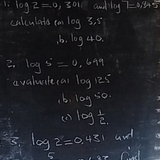 1. log 2 = 0,301 and log 7 = 0,845
calculate (a) log 3,5
(b. log 40.
2. log 5 = 0,699
evaluate (a) log 125
(b. log 50.
(c) log ½
3. log 2 = 0,431 and